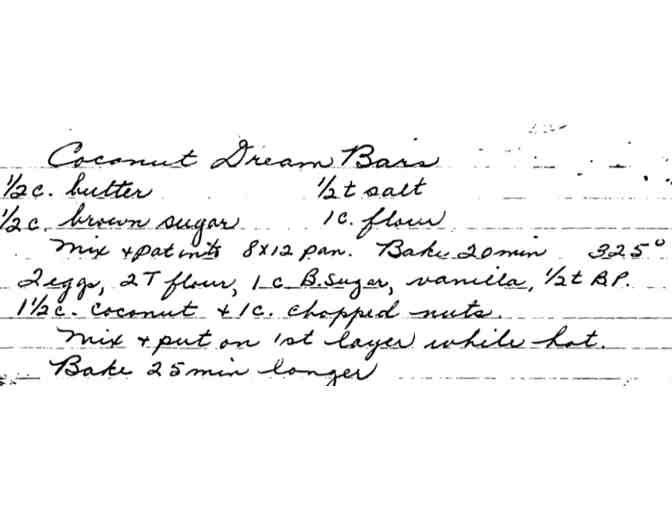 Coconut Dream Bars
1/2 c. butter 1/2 t salt
1/2 c. brown sugar 1 c. flour
Mix + pat into 8x12 pan. Bake 20 min 325°
2 eggs, 2 T flour, 1 c B. Sugar, vanilla, 1/2 t B.P.
1 1/2 c. coconut + 1 c. chopped nuts.
Mix + put on 1st layer while hot.
Bake 25 min longer